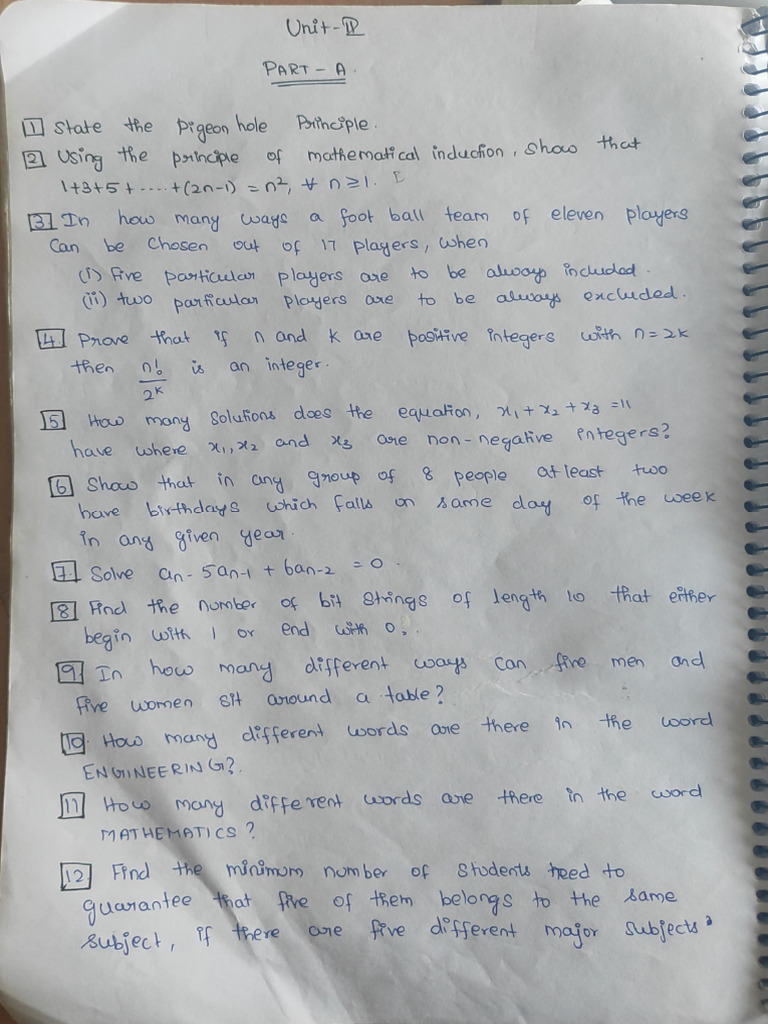 Unit-II
PART-A.
1 State the Pigeon hole Principle.
2 Using the principle of mathematical induction, show that
1+3+5+.....+(2n-1) = n², ∀ n≥1.
3 In how many ways a foot ball team of eleven players
Can be chosen out of 17 players, when
(i) five particular players are to be always included.
(ii) two particular players are to be always excluded.
4 Prove that if n and k are positive integers with n=2k
then n!/2^k is an integer.
5 How many solutions does the equation, x₁+x₂+x₃=11
have where x₁,x₂ and x₃ are non-negative integers?
6 Show that in any group of 8 people atleast two
have birthdays which falls on same day of the week
in any given year.
7. Solve an-5an-1+6an-2 = 0.
8 Find the number of bit strings of length 10 that either
begin with 1 or end with 0.
9 In how many different ways can five men and
five women sit around a table?
10. How many different words are there in the word
ENGINEERING?.
11 How many different words are there in the word
MATHEMATICS?
12 Find the minimum number of students need to
guarantee that five of them belongs to the same
subject, if there are five different major subjects